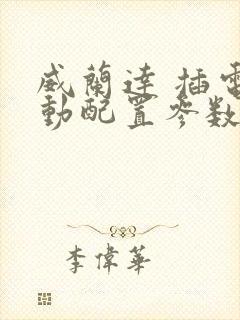 威蘭達 插電
動配置参数
李偉華